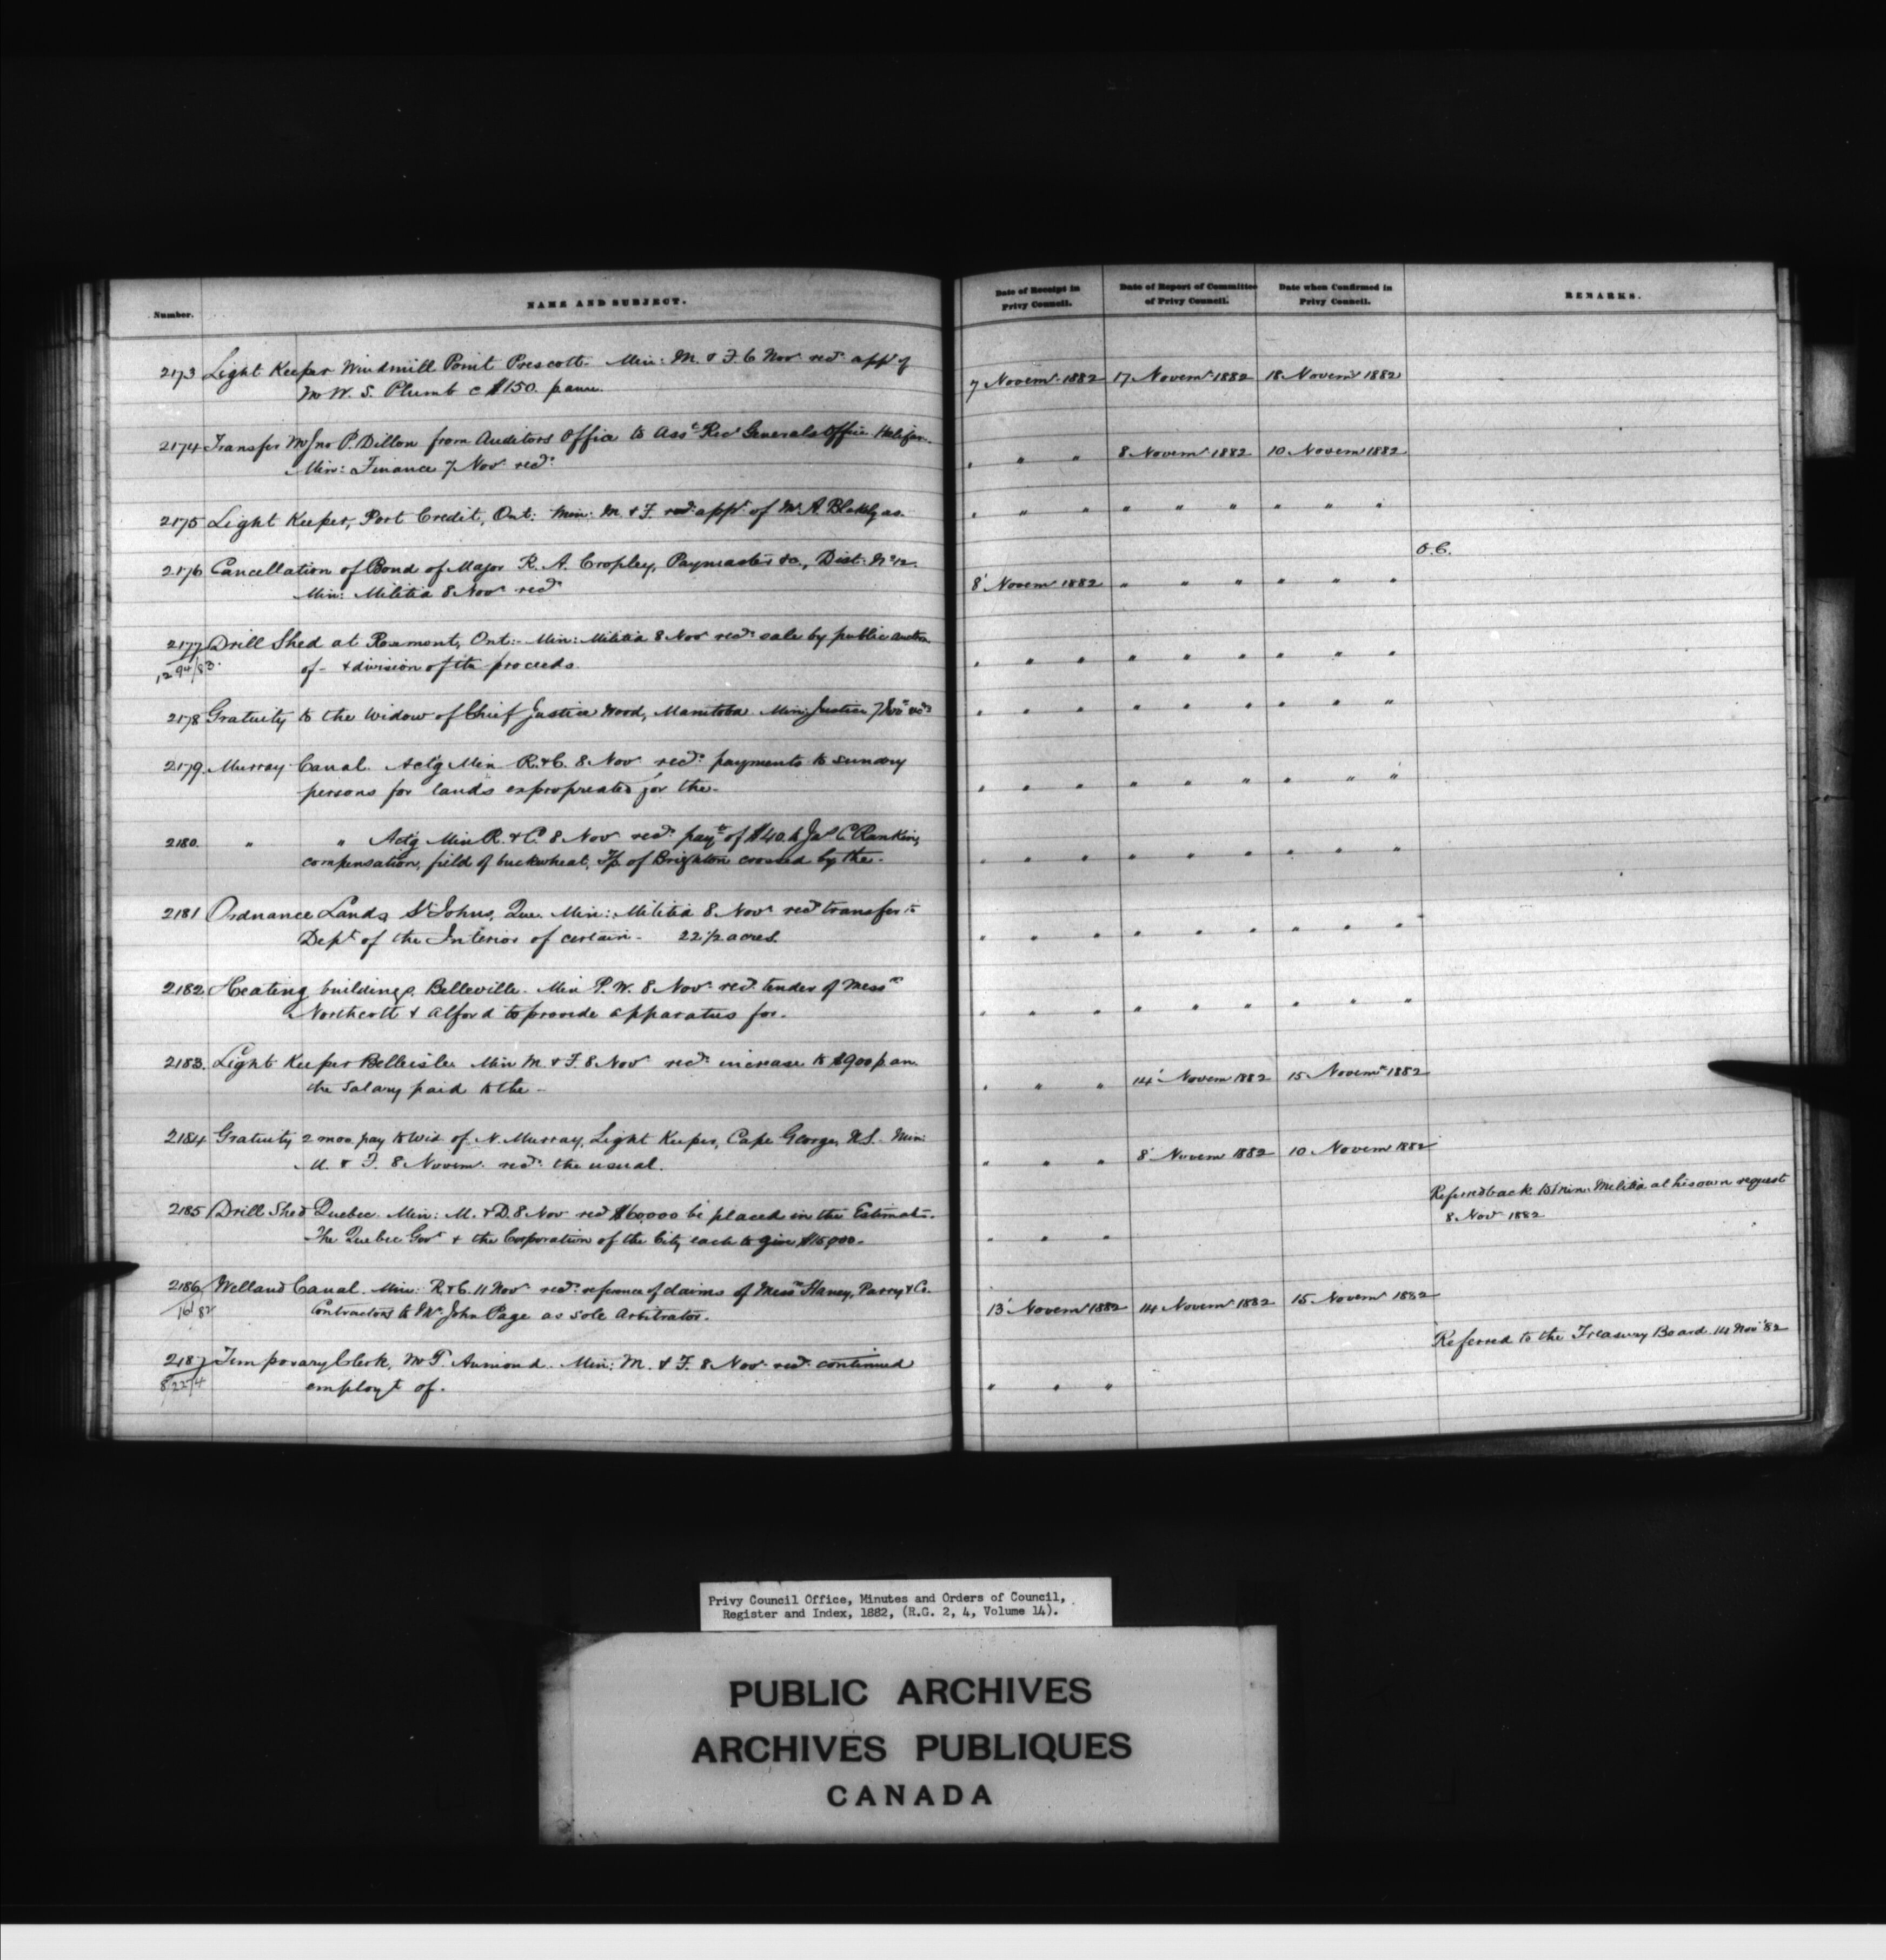 Number.
NAME AND SUBJECT.
Date of Receipt in Privy Council.
Date of Report of Committee of Privy Council.
Date when Confirmed in Privy Council.
REMARKS.
2173 Light Keeper Windmill Point Prescott. Min: M. & F. 6 Nov recd. appt of
Mr W. S. Plumb @ $150. p ann.
7 Novemr 1882 17 Novemr 1882 18 Novemr 1882
2174 Transfer Mr Jno P. Dillon from Auditors Office to Asst Recr Generals Office Halifax.
Min: Finance 7 Nov. recd.
" " " 8 Novemr 1882 10 Novem 1882
2175 Light Keeper, Port Credit, Ont: Min: M. & F. recd. appt of Mr A. Blakely as.
" " " " " " " " "
2176 Cancellation of Bond of Major R. A. Cropley, Paymaster &c., Dist: No 12.
Min: Militia 8 Nov recd
8' Novem 1882 " " " " " "
O.C.
2177 Drill Shed at Rosemont, Ont:- Min: Militia 8 Nov recd. sale by public auction
1294/83. of - & division of the proceeds.
" " " " " " " " "
2178 Gratuity to the Widow of Chief Justice Wood, Manitoba. Min: Justice 7 Nov recd
" " " " " " " " "
2179. Murray Canal. Actg Min R. & C. 8 Nov recd. payments to sundry
persons for lands expropriated for the -
" " " " " " " " "
2180. " " Actg Min R. & C. 8 Nov recd. payt of $40. to Jas C. Rankin,
compensation, field of buckwheat, T/p of Brighton crossed by the -
" " " " " " " " "
2181 Ordnance Lands St Johns, Que. Min: Militia 8 Novr recd transfer to
Dept of the Interior of certain - 22 1/2 acres.
" " " " " " " " "
2182 Heating buildings. Belleville. Min P. W. 8 Nov. recd. tender of Messrs
Northcott & Alford to provide apparatus for.
" " " " " " " " "
2183. Light Keeper Belleisle. Min M. & F. 8 Nov recd. increase to $900 p an.
the Salary paid to the -
" " " 14' Novem 1882 15 Novemr 1882
2184 Gratuity 2 mos. pay to Wid of N. Murray, Light Keeper, Cape George, N.S. Min:
M. & F. 8 Novem. recd. the usual.
" " " 8' Novem 1882 10 Novem 1882
2185 Drill Shed Quebec. Min: M. & D. 8 Nov recd $60,000 be placed in the Estimates.
The Quebec Govt & the Corporation of the City each to give $15,000.
" " "
Referred back to Min: Militia at his own request
8 Novr 1882
2186 Welland Canal. Min: R. & C. 11 Nov recd. reference of claims of Messrs Haney, Parry & Co.
Contractors to Mr John Page as sole Arbitrator.
13' Novemr 1882 14 Novemr 1882 15 Novemr 1882
2187 Temporary Clerk, Mr T. Aumond. Min: M. & F. 8 Nov. recd. continued
employt of.
" " "
Referred to the Treasury Board. 14 Nov '82
Privy Council Office, Minutes and Orders of Council,
Register and Index, 1882, (R.G. 2, 4, Volume 14).
PUBLIC ARCHIVES
ARCHIVES PUBLIQUES
CANADA